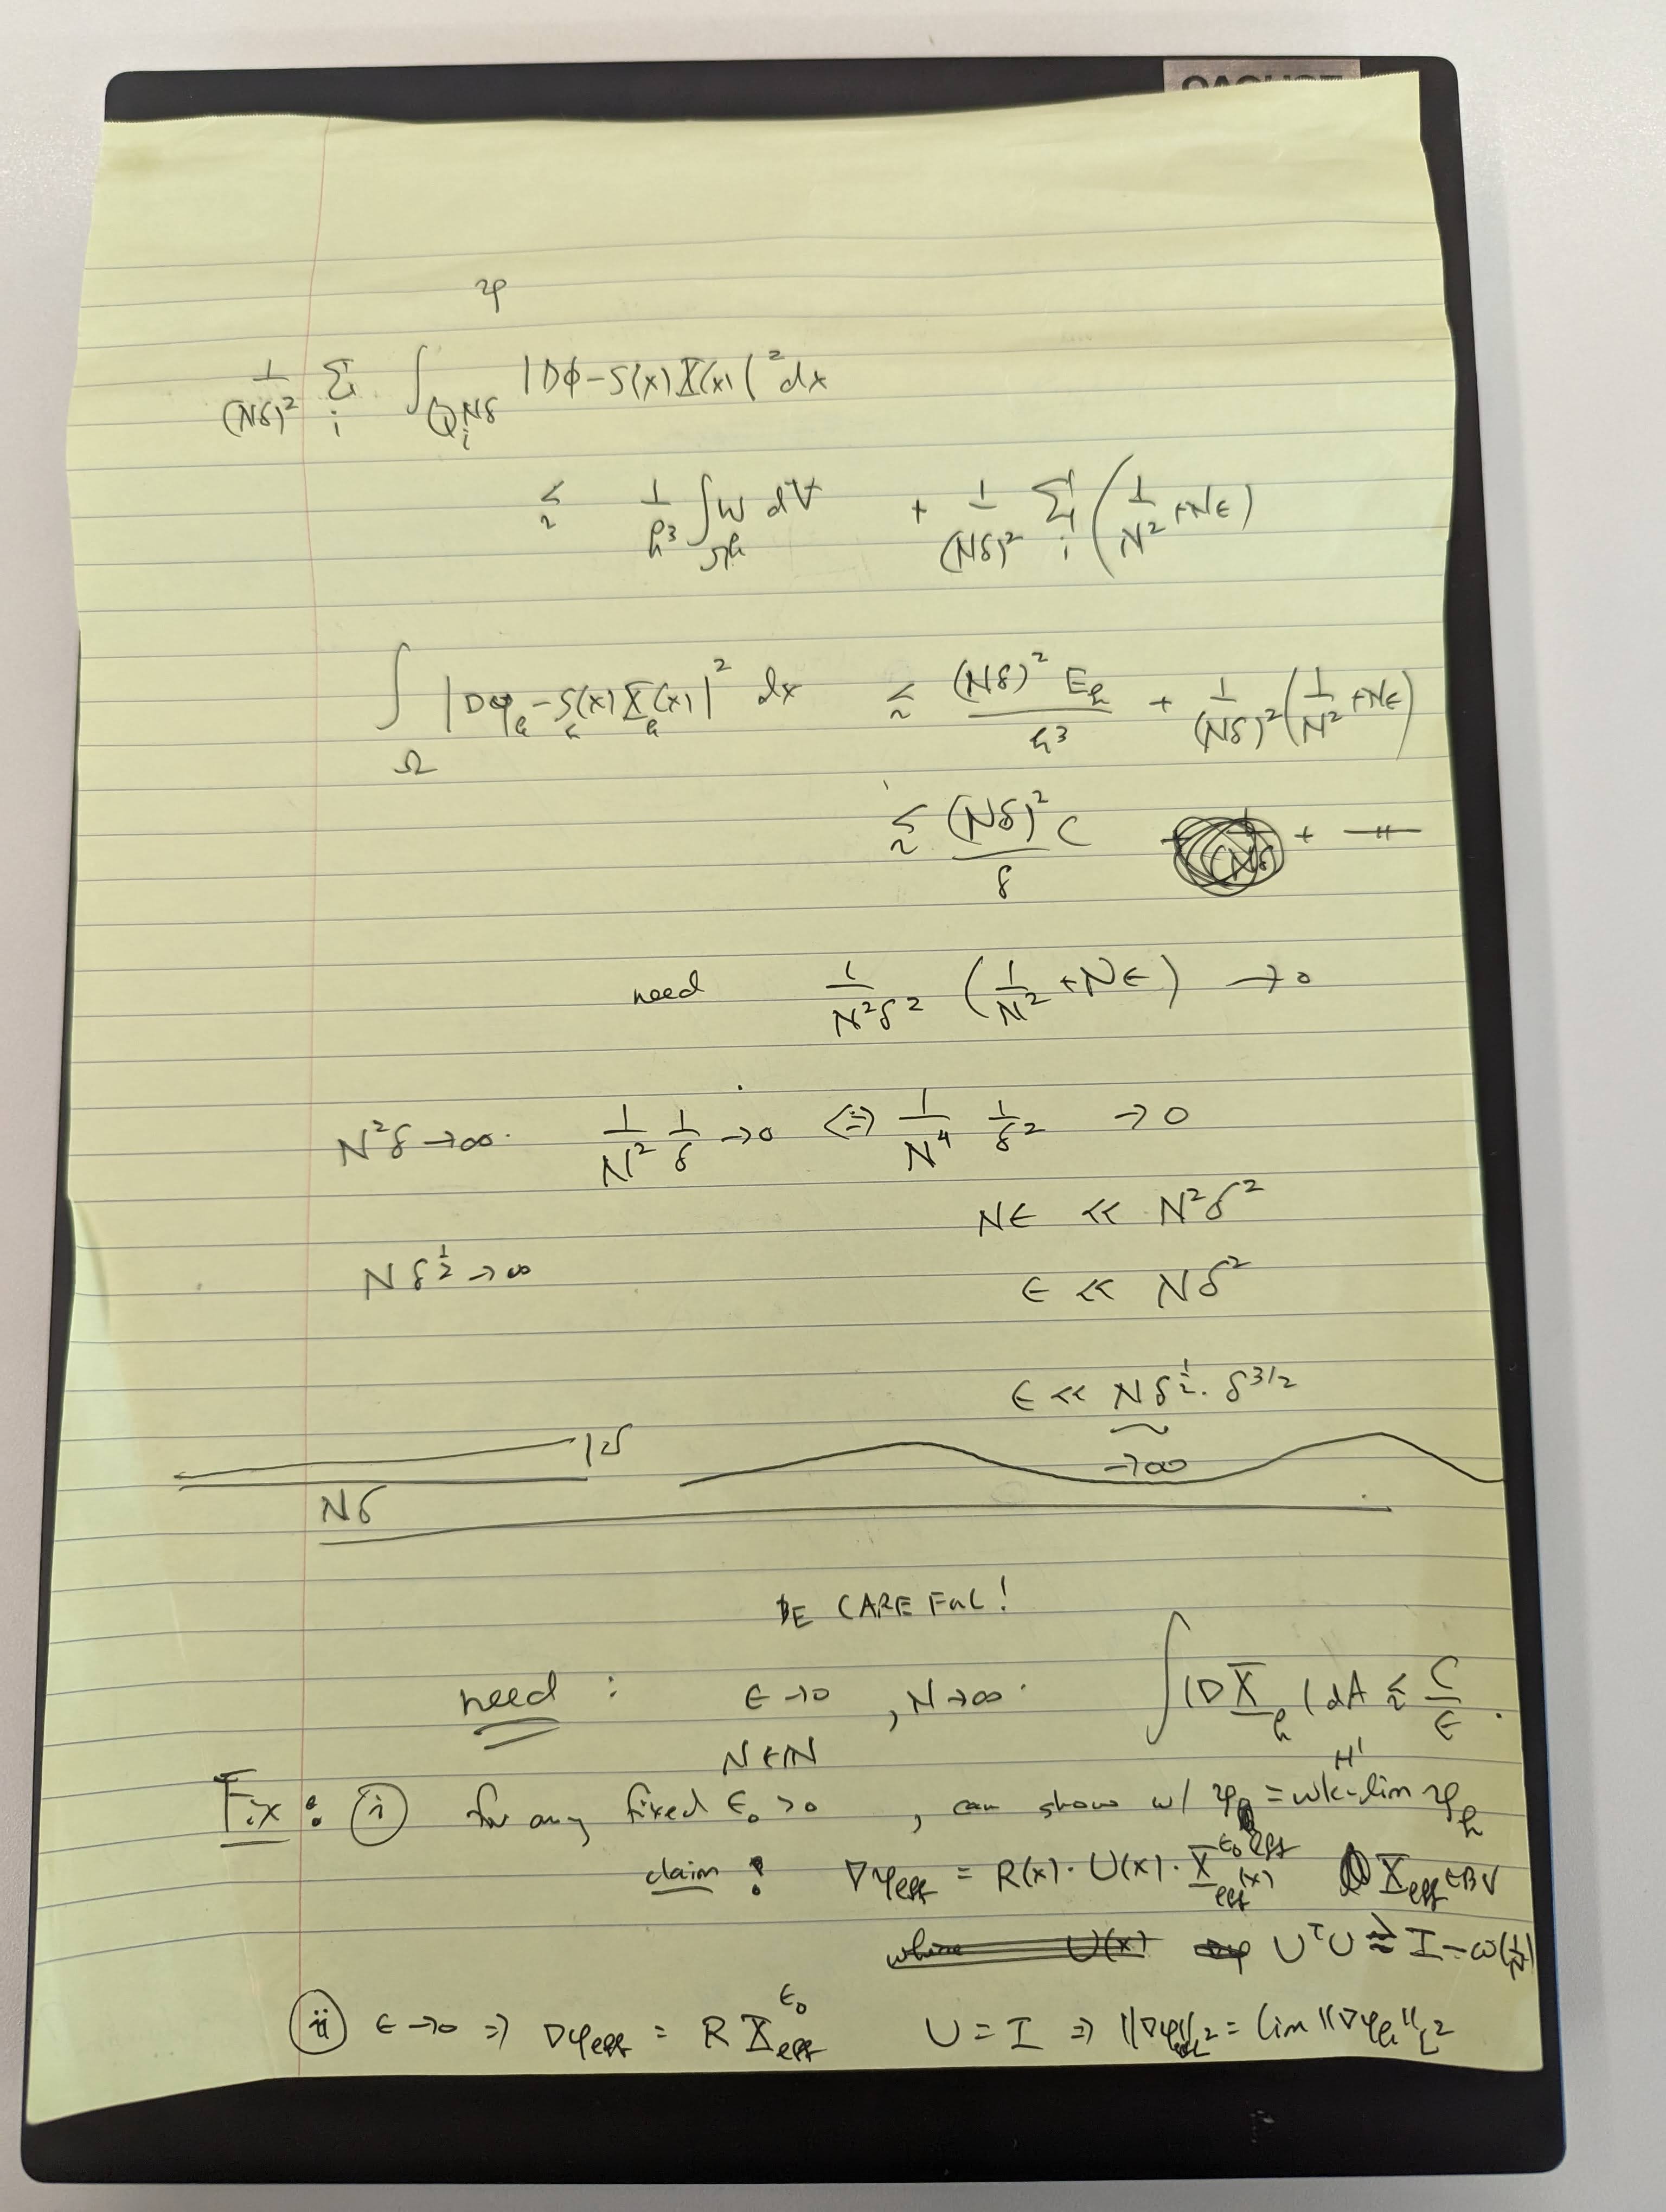 φ
1/(Nδ)² Σ_i ∫_{Q_i^{Nδ}} |Dϕ - S(x) X(x)|² dx
≲ 1/h³ ∫_{Ω^h} W dV + 1/(Nδ)² Σ_i (1/N² + Nε)
∫_Ω |Dφ_h - S_h(x) X_h(x)|² dx ≲ (Nδ)² E_h / h³ + 1/(Nδ)² (1/N² + Nε)
≲ (Nδ)²/δ C + —〃—
need 1/(N²δ²) (1/N² + Nε) → 0
N²δ → ∞. 1/N² 1/δ → 0 ⟺ 1/N⁴ 1/δ² → 0
Nε << N²δ²
Nδ^{1/2} → ∞
ε << Nδ²
ε << Nδ^{1/2} · δ^{3/2}
→ ∞
Nδ
BE CAREFUL!
need : ε → 0, N → ∞. ∫ |D X_h| dA ≲ C/ε.
N ∈ ℕ
Fix: (i) for any fixed ε₀ > 0, can show w/ φ = wk-lim φ_h
H¹
claim : ∇φ_eff = R(x) · U(x) · X_eff^{ε₀}(x) X_eff ∈ BV
UᵀU ≈ I - ω(1/N)
(ii) ε → 0 ⇒ ∇φ_eff = R X_eff^{ε₀} U = I ⇒ ||∇φ_eff||_{L²} = lim ||∇φ_h||_{L²}